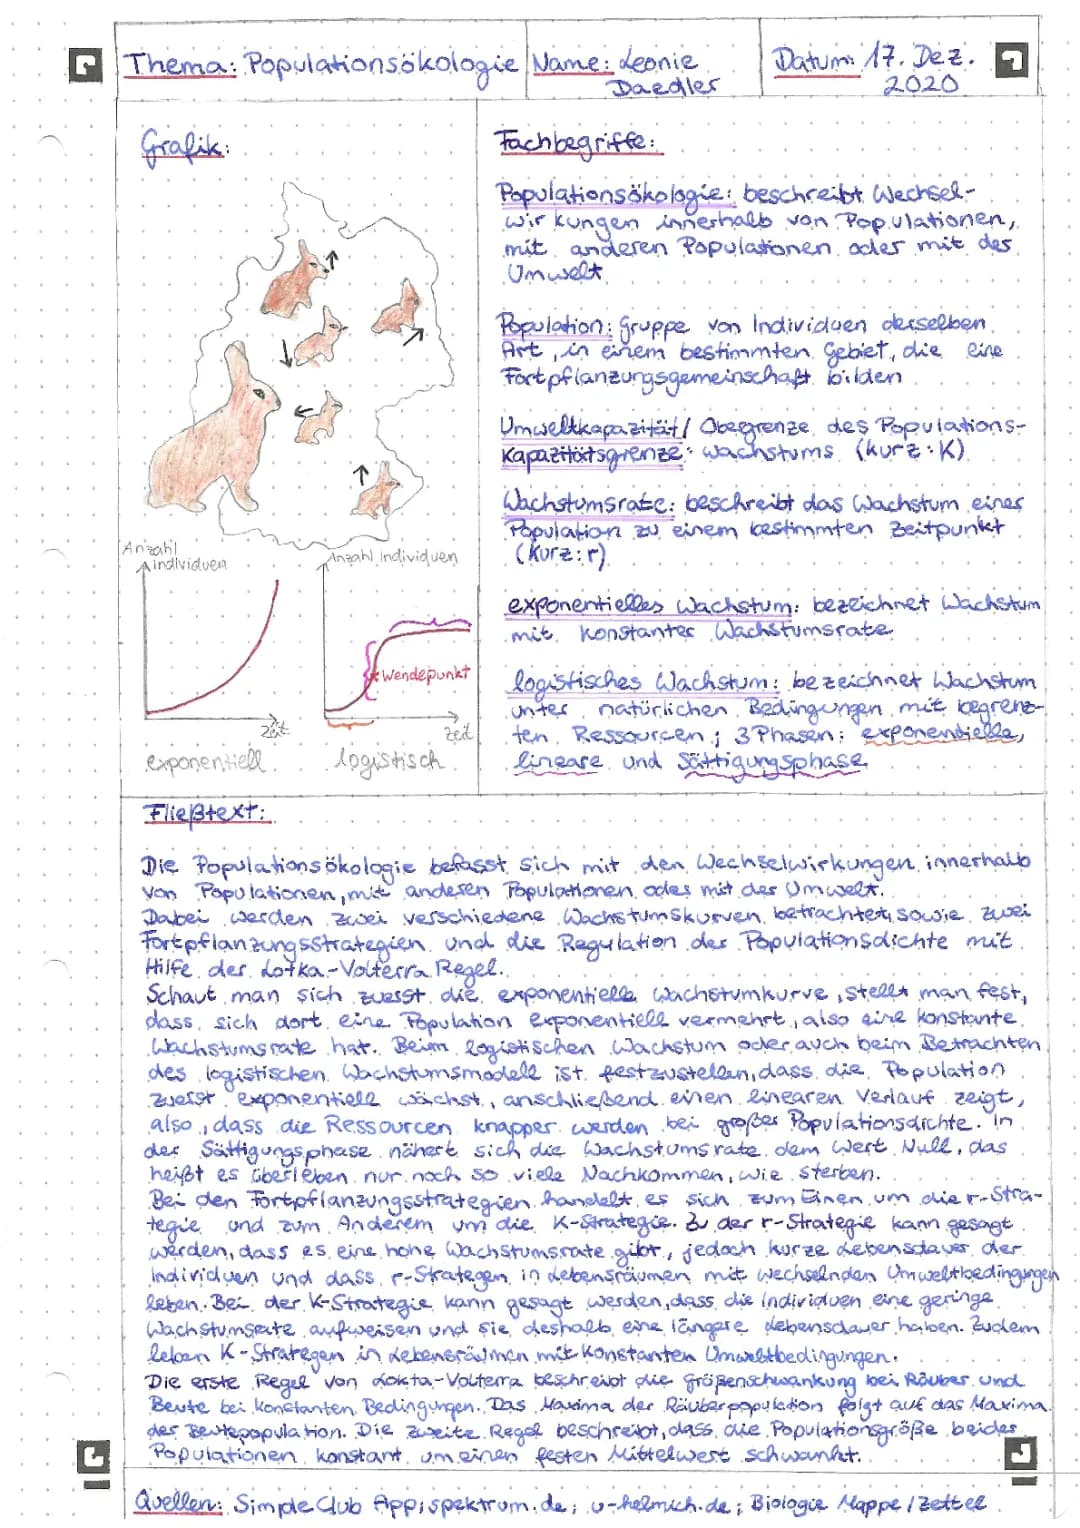 Thema: Populationsökologie
Name: Leonie
Daedler
Datum: 17. Dez.
2020
Grafik:
Anzahl
individuen
Zeit
exponentiell
Anzahl individuen
Wendepunkt
Zeit
logistisch
Fachbegriffe:
Populationsökologie: beschreibt Wechsel-
wirkungen innerhalb von Populationen,
mit anderen Populationen oder mit der
Umwelt
Population: Gruppe von Individuen derselben
Art, in einem bestimmten Gebiet, die eine
Fortpflanzungsgemeinschaft bilden
Umweltkapazität/ Obergrenze des Populations-
Kapazitätsgrenze: wachstums (kurz: K)
Wachstumsrate: beschreibt das Wachstum einer
Population zu einem bestimmten Zeitpunkt
(kurz: r)
exponentielles Wachstum: bezeichnet Wachstum
mit konstanter Wachstumsrate
logistisches Wachstum: bezeichnet Wachstum
unter natürlichen Bedingungen mit begrenz-
ten Ressourcen; 3 Phasen: exponentielle,
lineare und Sättigungsphase
Fließtext:
Die Populationsökologie befasst sich mit den Wechselwirkungen innerhalb
von Populationen, mit anderen Populationen oder mit der Umwelt.
Dabei werden zwei verschiedene Wachstumskurven betrachtet, sowie zwei
Fortpflanzungsstrategien und die Regulation der Populationsdichte mit
Hilfe der Lotka-Volterra Regel.
Schaut man sich zuerst die exponentielle Wachstumkurve, stellt man fest,
dass sich dort eine Population exponentiell vermehrt, also eine konstante
Wachstumsrate hat. Beim logistischen Wachstum oder auch beim Betrachten
des logistischen Wachstumsmodell ist festzustellen, dass die Population
zuerst exponentiell wächst, anschließend einen linearen Verlauf zeigt,
also, dass die Ressourcen knapper werden bei großer Populationsdichte. In
der Sättigungsphase nähert sich die Wachstumsrate dem Wert Null, das
heißt es überleben nur noch so viele Nachkommen, wie sterben.
Bei den Fortpflanzungsstrategien handelt es sich zum Einen um die r-Stra-
tegie und zum Anderem um die K-Strategie. Zu der r-Strategie kann gesagt
werden, dass es eine hohe Wachstumsrate gibt, jedoch kurze Lebensdauer der
Individuen und dass r-Strategen in Lebensräumen mit wechselnden Umweltbedingungen
leben. Bei der K-Strategie kann gesagt werden, dass die Individuen eine geringe
Wachstumsrate aufweisen und sie deshalb eine längere Lebensdauer haben. Zudem
leben K-Strategen in Lebensräumen mit konstanten Umweltbedingungen.
Die erste Regel von Lokta-Volterra beschreibt die Größenschwankung bei Räuber und
Beute bei konstanten Bedingungen. Das Maxima der Räuberpopulation folgt auf das Maxima
der Beutepopulation. Die zweite Regel beschreibt, dass die Populationsgröße beider
Populationen konstant um einen festen Mittelwert schwankt.
Quellen: Simple Club App; spektrum.de; u-helmich.de; Biologie Mappe / Zettel